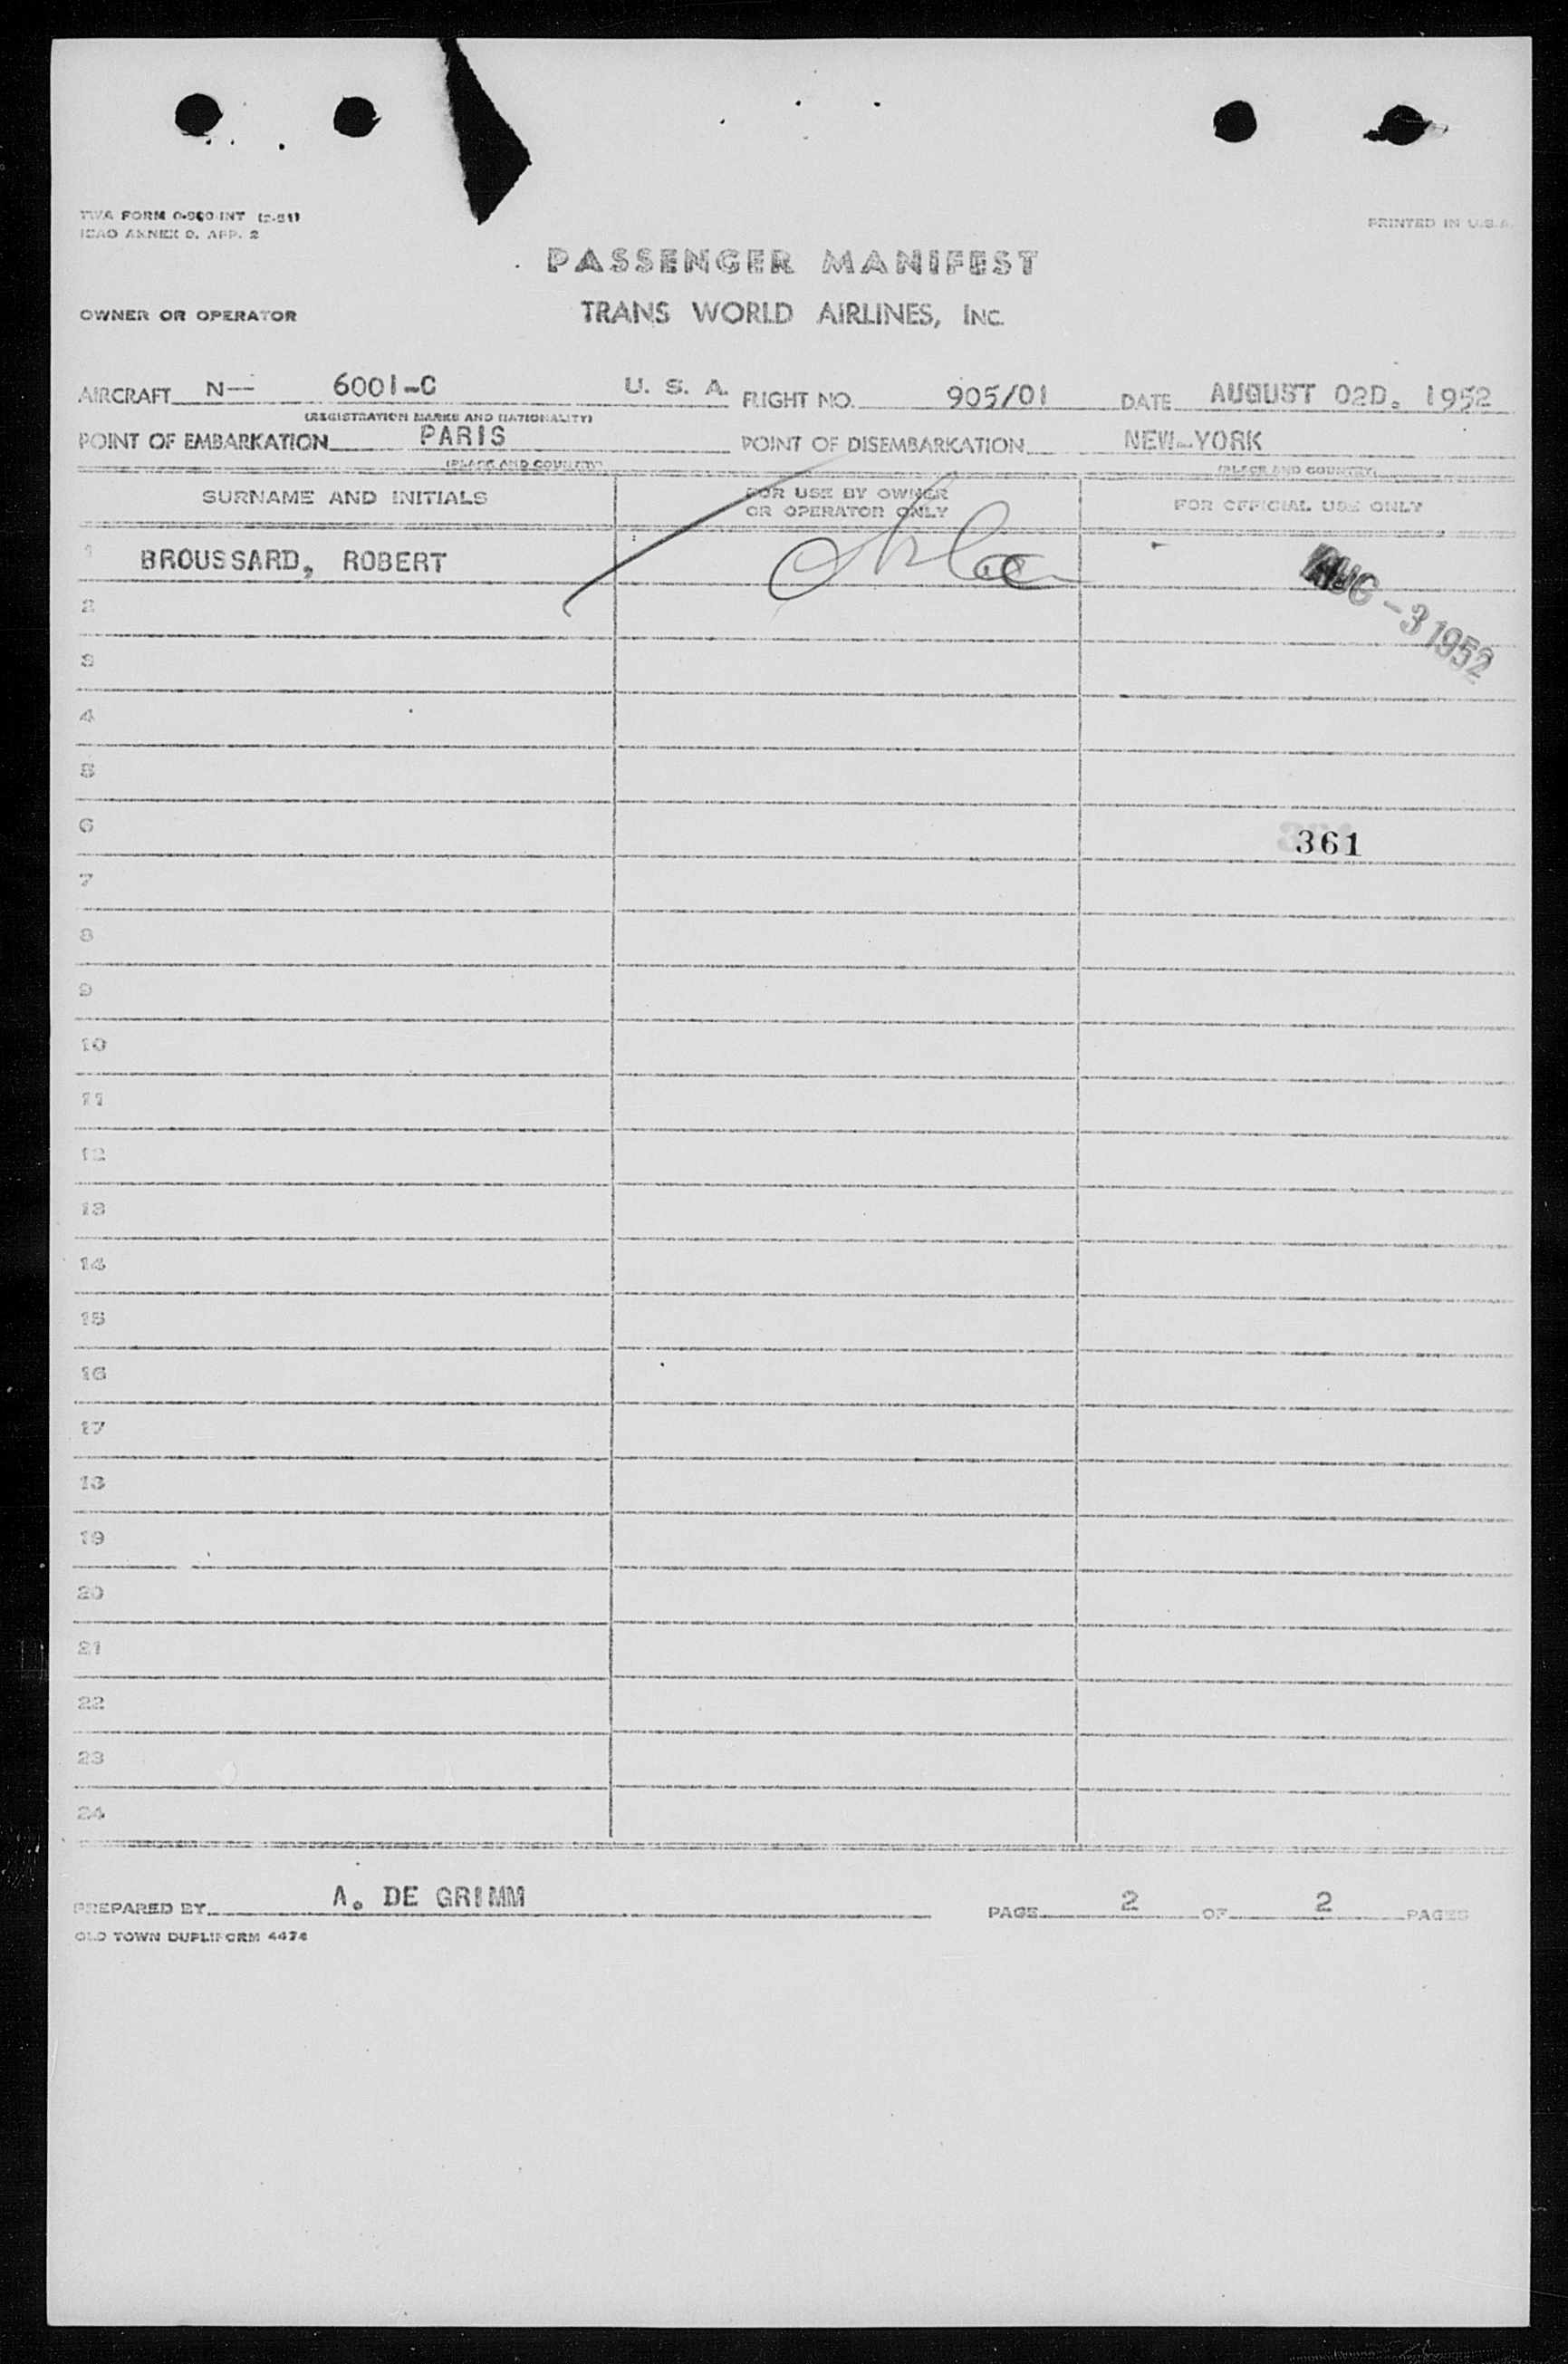 TWA FORM 0-900-INT (2-51)
ICAO ANNEX 9, APP. 2
PRINTED IN U.S.A.
PASSENGER MANIFEST
OWNER OR OPERATOR TRANS WORLD AIRLINES, INC.
AIRCRAFT N- 6001-C U. S. A. FLIGHT NO. 905/01 DATE AUGUST 02D. 1952
(REGISTRATION MARKS AND NATIONALITY)
POINT OF EMBARKATION PARIS POINT OF DISEMBARKATION NEW-YORK
(PLACE AND COUNTRY) (PLACE AND COUNTRY)
SURNAME AND INITIALS FOR USE BY OWNER OR OPERATOR ONLY FOR OFFICIAL USE ONLY
1 BROUSSARD, ROBERT
AUG -3 1952
2
3
4
5
6 361
7
8
9
10
11
12
13
14
15
16
17
18
19
20
21
22
23
24
PREPARED BY A. DE GRIMM PAGE 2 OF 2 PAGES
OLD TOWN DUPLIFORM 4474